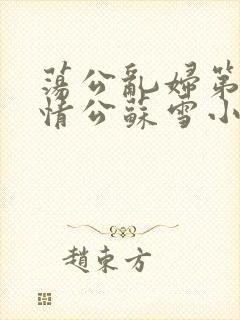 蕩公亂婦第
情公蘇雪小
趙東方